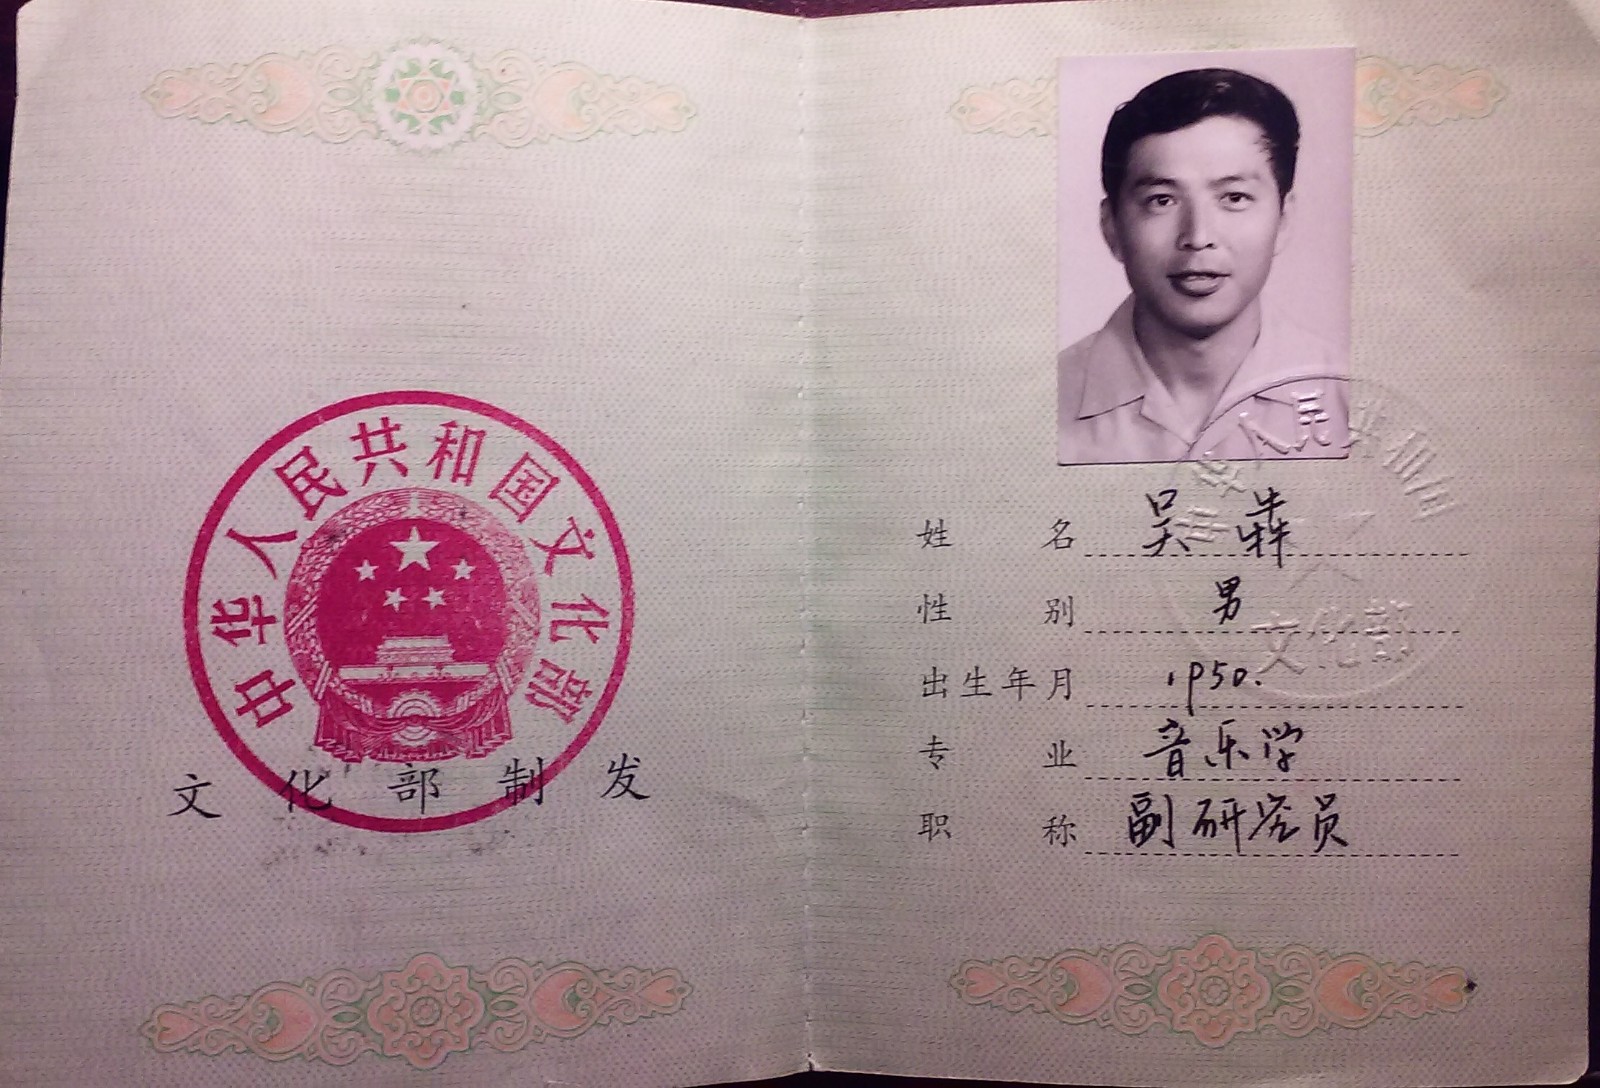 中华人民共和国文化部
文化部制发
姓名 吴犇
性别 男
出生年月 1950.
专业 音乐学
职称 副研究员
中华人民共和国
文化部